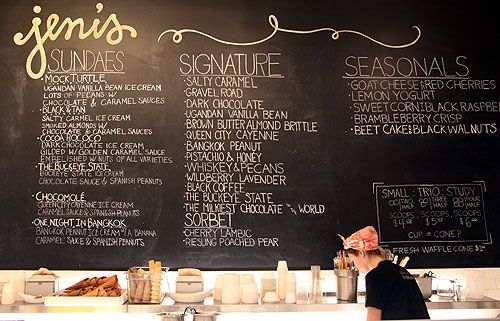 jeni's
SUNDAES
• MOCK TURTLE
UGANDAN VANILLA BEAN ICE CREAM
LOTS OF PECANS W/
CHOCOLATE & CARAMEL SAUCES
• BLACK & TAN
SALTY CARMEL ICE CREAM
SMOKED ALMONDS W/
CHOCOLATE & CARAMEL SAUCES
• COCOA ROCOCO
DARK CHOCOLATE ICE CREAM
GILDED W/ GOLDEN CARAMEL SAUCE
EMBELLISHED W/ NUTS OF ALL VARIETIES
• THE BUCKEYE STATE
BUCKEYE STATE ICE CREAM
CHOCOLATE SAUCE & SPANISH PEANUTS
• CHOCOMOLÉ
QUEEN CITY CAYENNE ICE CREAM
CARAMEL SAUCE & SPANISH PEANUTS
• ONE NIGHT IN BANGKOK
BANGKOK PEANUT ICE CREAM W/ A BANANA
CARAMEL SAUCE & SPANISH PEANUTS
SIGNATURE
• SALTY CARAMEL
• GRAVEL ROAD
• DARK CHOCOLATE
• UGANDAN VANILLA BEAN
• BROWN BUTTER ALMOND BRITTLE
• QUEEN CITY CAYENNE
• BANGKOK PEANUT
• PISTACHIO & HONEY
• WHISKEY & PECANS
• WILDBERRY LAVENDER
• BLACK COFFEE
• THE BUCKEYE STATE
• THE MILKIEST CHOCOLATE IN THE WORLD
SORBET
• CHERRY LAMBIC
• RIESLING POACHED PEAR
SEASONALS
• GOAT CHEESE & RED CHERRIES
• LEMON YOGURT
• SWEET CORN & BLACK RASPBER
• BRAMBLEBERRY CRISP
• BEET CAKE & BLACK WALNUTS
SMALL : TRIO : STUDY
SCOOPS SCOOPS SCOOPS
CUP or CONE?
FRESH WAFFLE CONE $1